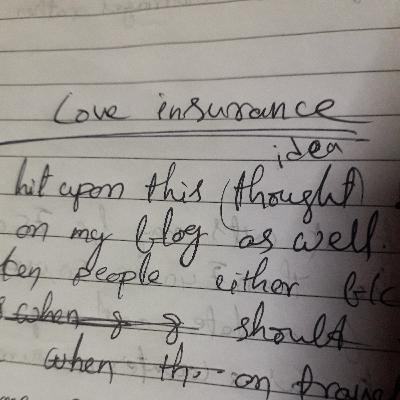 Love insurance
idea
hit upon this (thought)
on my blog as well.
people either
when should
when on